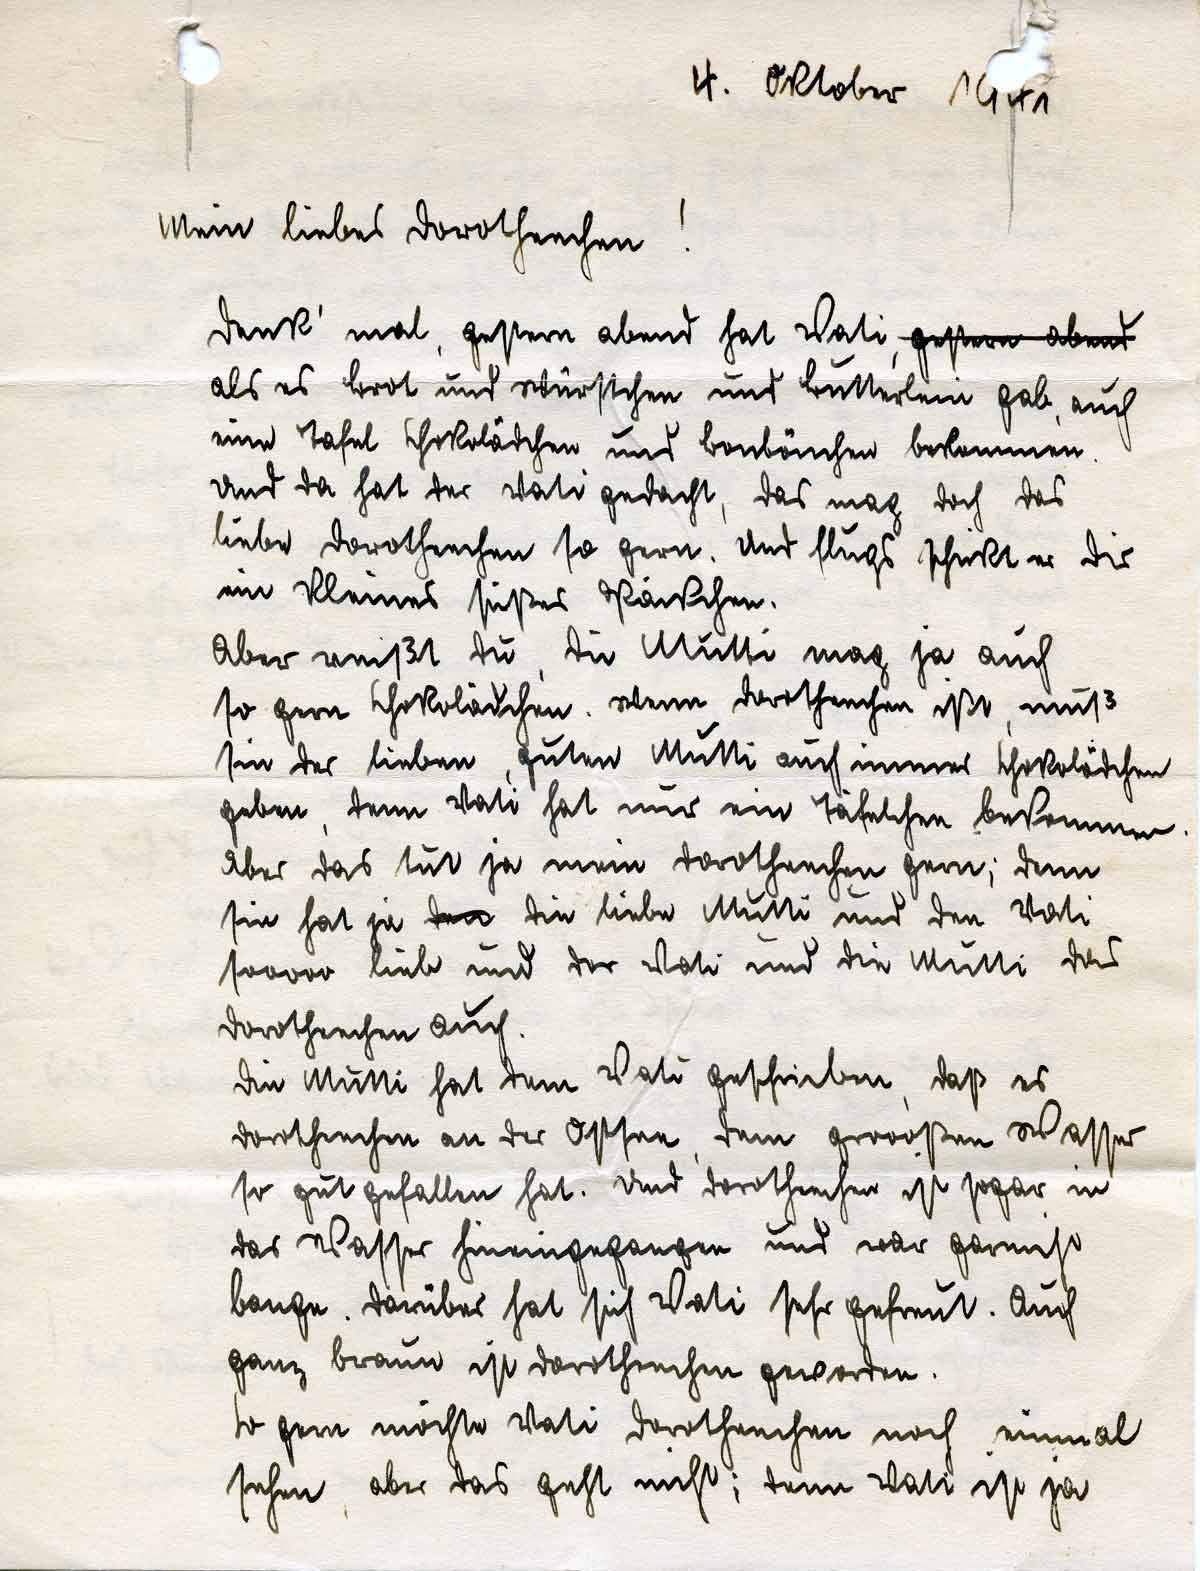 4. Oktober 1941
Mein liebes Dorotheechen !
Denk' mal, gestern abend hat Vati, gestern abend
als es Brot und Würstchen und Butterlein gab, auch
eine Tafel Schokolädchen und Bonbönchen bekommen.
Und da hat der Vati gedacht, das mag doch das
liebe Dorotheechen so gern. Und flugs schickt er Dir
ein kleines süßes Päckchen.
Aber weißt Du, die Mutti mag ja auch
so gern Schokolädchen. Wenn Dorotheechen ißt, muß
sie der lieben, guten Mutti auch immer Schokolädchen
geben, denn Vati hat nur ein Täfelchen bekommen.
Aber das tut ja mein Dorotheechen gern; denn
sie hat ja den die liebe Mutti und den Vati
sooooo lieb und der Vati und die Mutti das
Dorotheechen auch.
Die Mutti hat dem Vati geschrieben, daß es
Dorotheechen an der Ostsee, dem groooßen Wasser
so gut gefallen hat. Und Dorotheechen ist sogar in
das Wasser hineingegangen und war garnicht
bange. Darüber hat sich Vati sehr gefreut. Auch
ganz braun ist Dorotheechen geworden.
So gern möchte Vati Dorotheechen noch einmal
sehen, aber das geht nicht; denn Vati ist ja